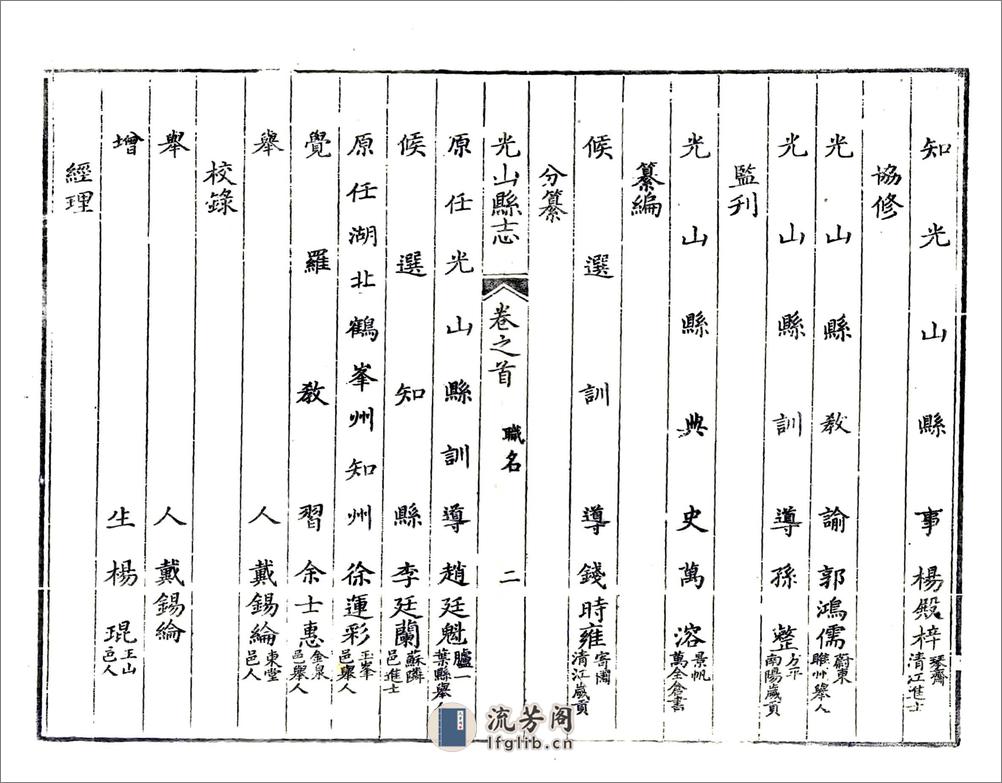 知光山縣事楊殿梓琴齋清江進士
協修
光山縣教諭郭鴻儒蔚東睢州舉人
光山縣訓導孫整方平南陽歲貢
監刋
光山縣典史萬溶景帆萬全倉書
纂編
候選訓導錢時雍寄圃清江歲貢
分纂
光山縣志 卷之首 職名 二
原任光山縣訓導趙廷魁臚一葉縣舉人
候選知縣李廷蘭蘇隣邑進士
原任湖北鶴峯州知州徐運彩玉峯邑舉人
覺羅教習余士惠金泉邑舉人
舉人戴錫綸東堂邑人
校錄
舉人戴錫綸
增生楊琨玉山邑人
經理
流芳阁
lfglib.cn